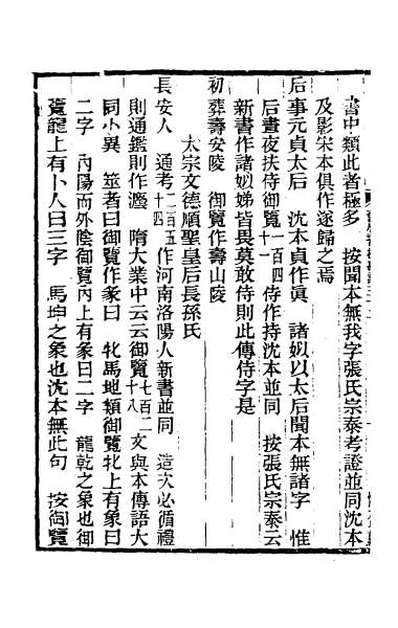 書中類此者極多　按聞本無我字張氏宗泰考證並同沈本
及影宋本俱作遂歸之焉
后事元貞太后　沈本貞作眞　諸姒以太后聞本無諸字　惟
后晝夜扶侍御覽一百四十一侍作持沈本並同　按張氏宗泰云
新書作諸姒娣皆畏莫敢侍則此傳侍字是
初葬壽安陵　御覽作壽山陵
太宗文德順聖皇后長孫氏
長安人　通考二百五十四作河南洛陽人新書並同　造次必循禮
則通鑑則作灋　隋大業中云云御覽七百二十八文與本傳語大
同小異　筮者曰御覽作彖曰　牝馬地類御覽牝上有象曰
二字　內陽而外陰御覽內上有彖曰二字　龍乾之象也御
覽龍上有卜人曰三字　馬坤之象也沈本無此句　按御覽